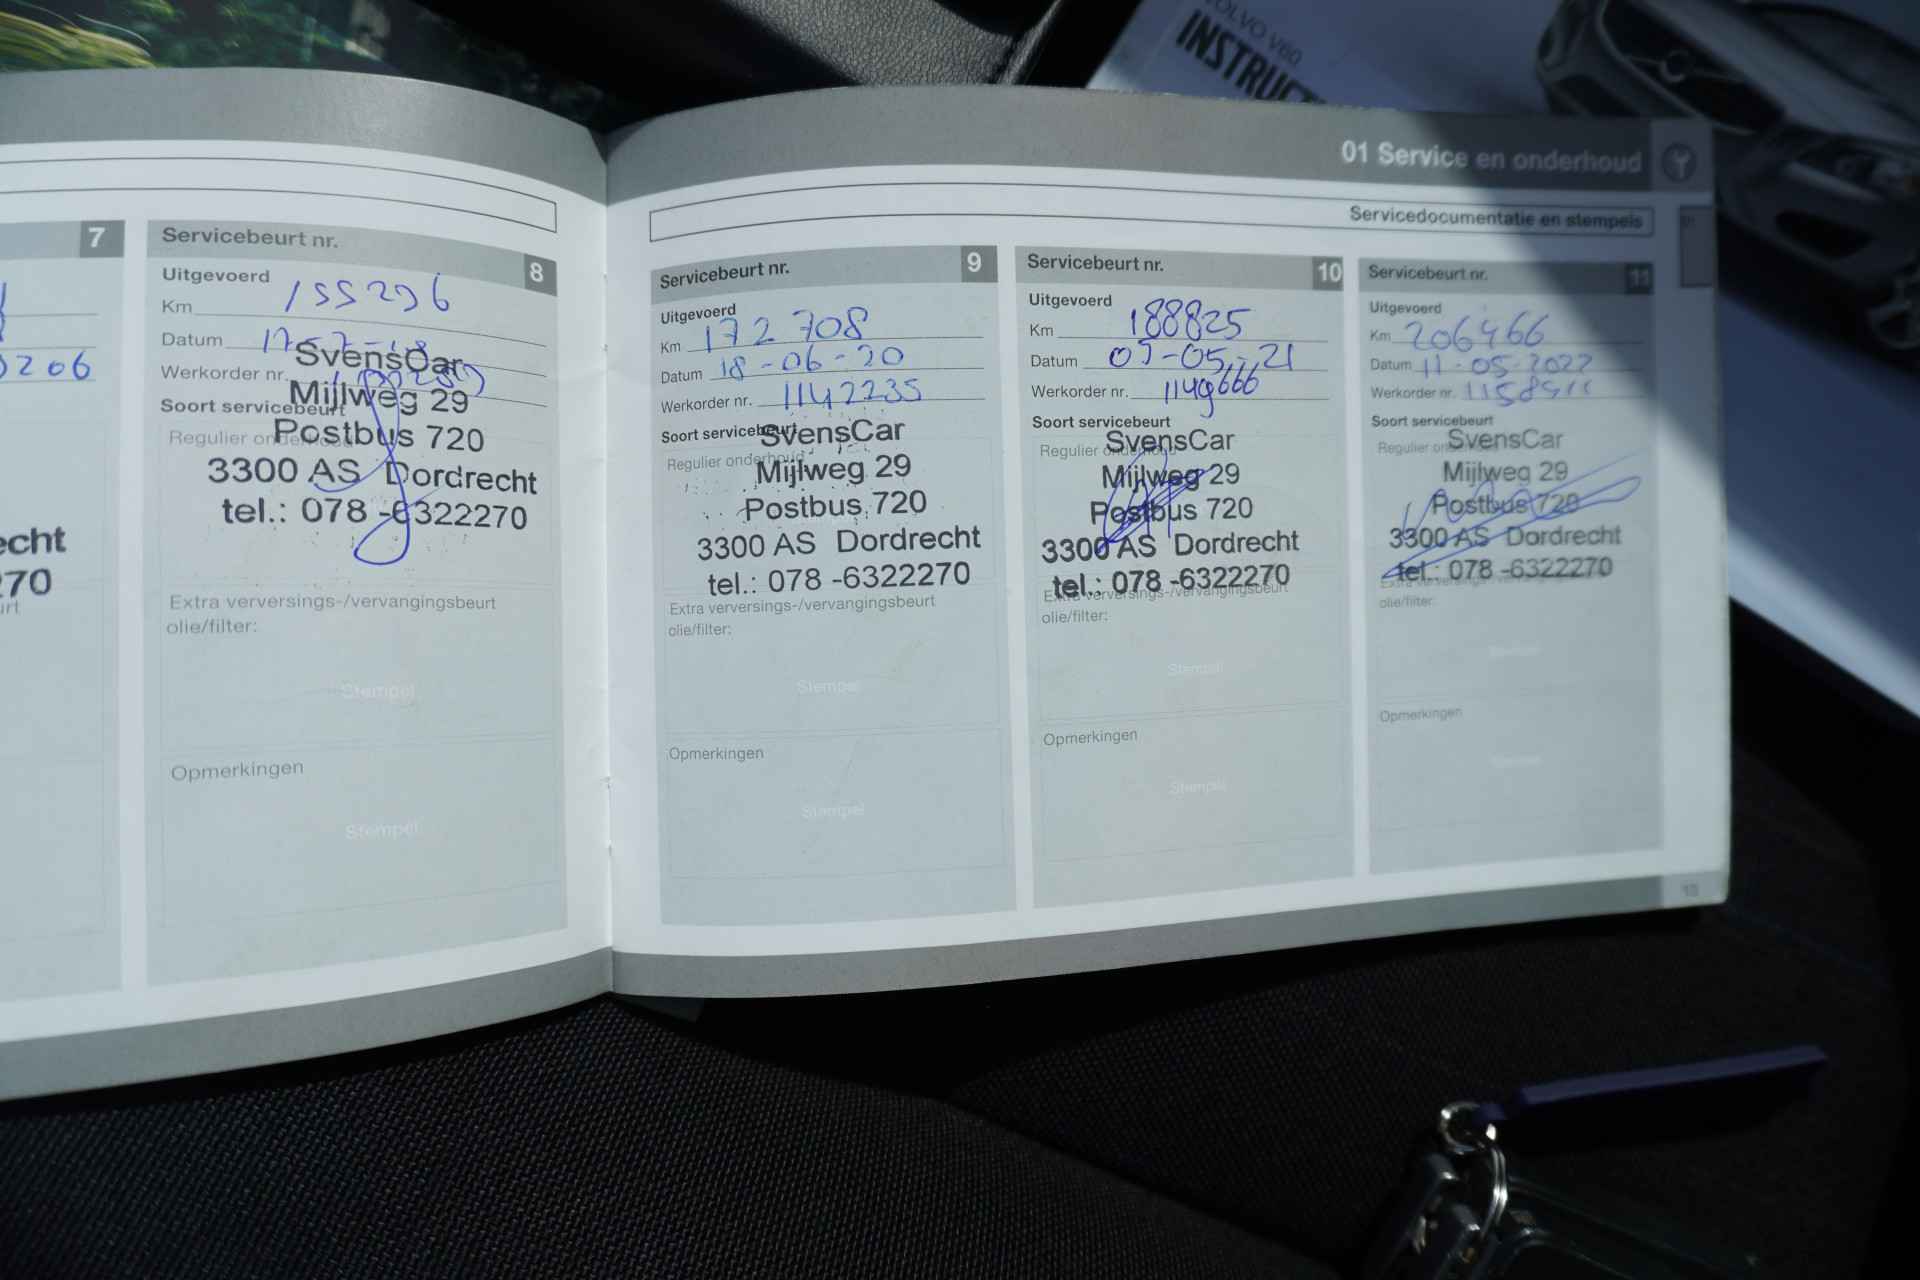 VOLVO V60
INSTRUCT
01 Service en onderhoud
Servicedocumentatie en stempels
7
206
echt
270
Servicebeurt nr. 8
Uitgevoerd
Km 155296
Datum
Werkorder nr.
Soort servicebeurt
Regulier onderhoud
SvensCar
Mijlweg 29
Postbus 720
3300 AS Dordrecht
tel.: 078 -6322270
Extra verversings-/vervangingsbeurt
olie/filter:
Stempel
Opmerkingen
Stempel
Servicebeurt nr. 9
Uitgevoerd
Km 172 708
Datum 18-06-20
Werkorder nr. 1142235
Soort servicebeurt
Regulier onderhoud
SvensCar
Mijlweg 29
Postbus 720
3300 AS Dordrecht
tel.: 078 -6322270
Extra verversings-/vervangingsbeurt
olie/filter:
Stempel
Opmerkingen
Stempel
Servicebeurt nr. 10
Uitgevoerd
Km 188825
Datum 07-05-21
Werkorder nr. 1149666
Soort servicebeurt
Regulier onderhoud
SvensCar
Mijlweg 29
Postbus 720
3300 AS Dordrecht
tel.: 078 -6322270
Extra verversings-/vervangingsbeurt
olie/filter:
Stempel
Opmerkingen
Stempel
Servicebeurt nr. 11
Uitgevoerd
Km 206466
Datum 11-05-2022
Werkorder nr.
Soort servicebeurt
Regulier onderhoud
SvensCar
Mijlweg 29
Postbus 720
3300 AS Dordrecht
tel.: 078 -6322270
Extra verversings-/vervangingsbeurt
olie/filter:
Stempel
Opmerkingen
Stempel